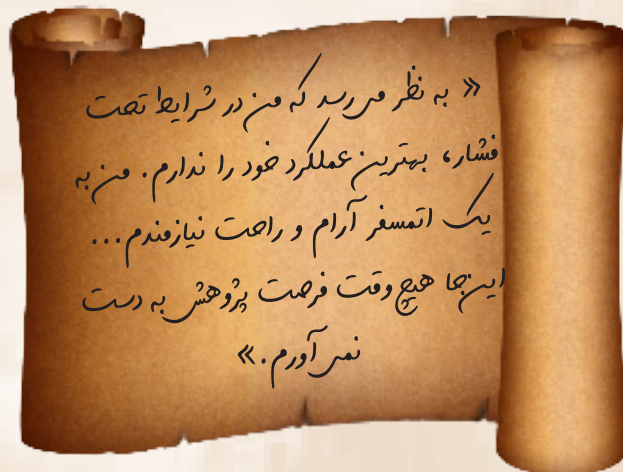 « به نظر می‌رسد که من در شرایط تحت
فشار، بهترین عملکرد خود را ندارم. من به
یک اتمسفر آرام و راحت نیازمندم...
این‌جا هیچ وقت فرصت پژوهش به دست
نمی‌آورم.»